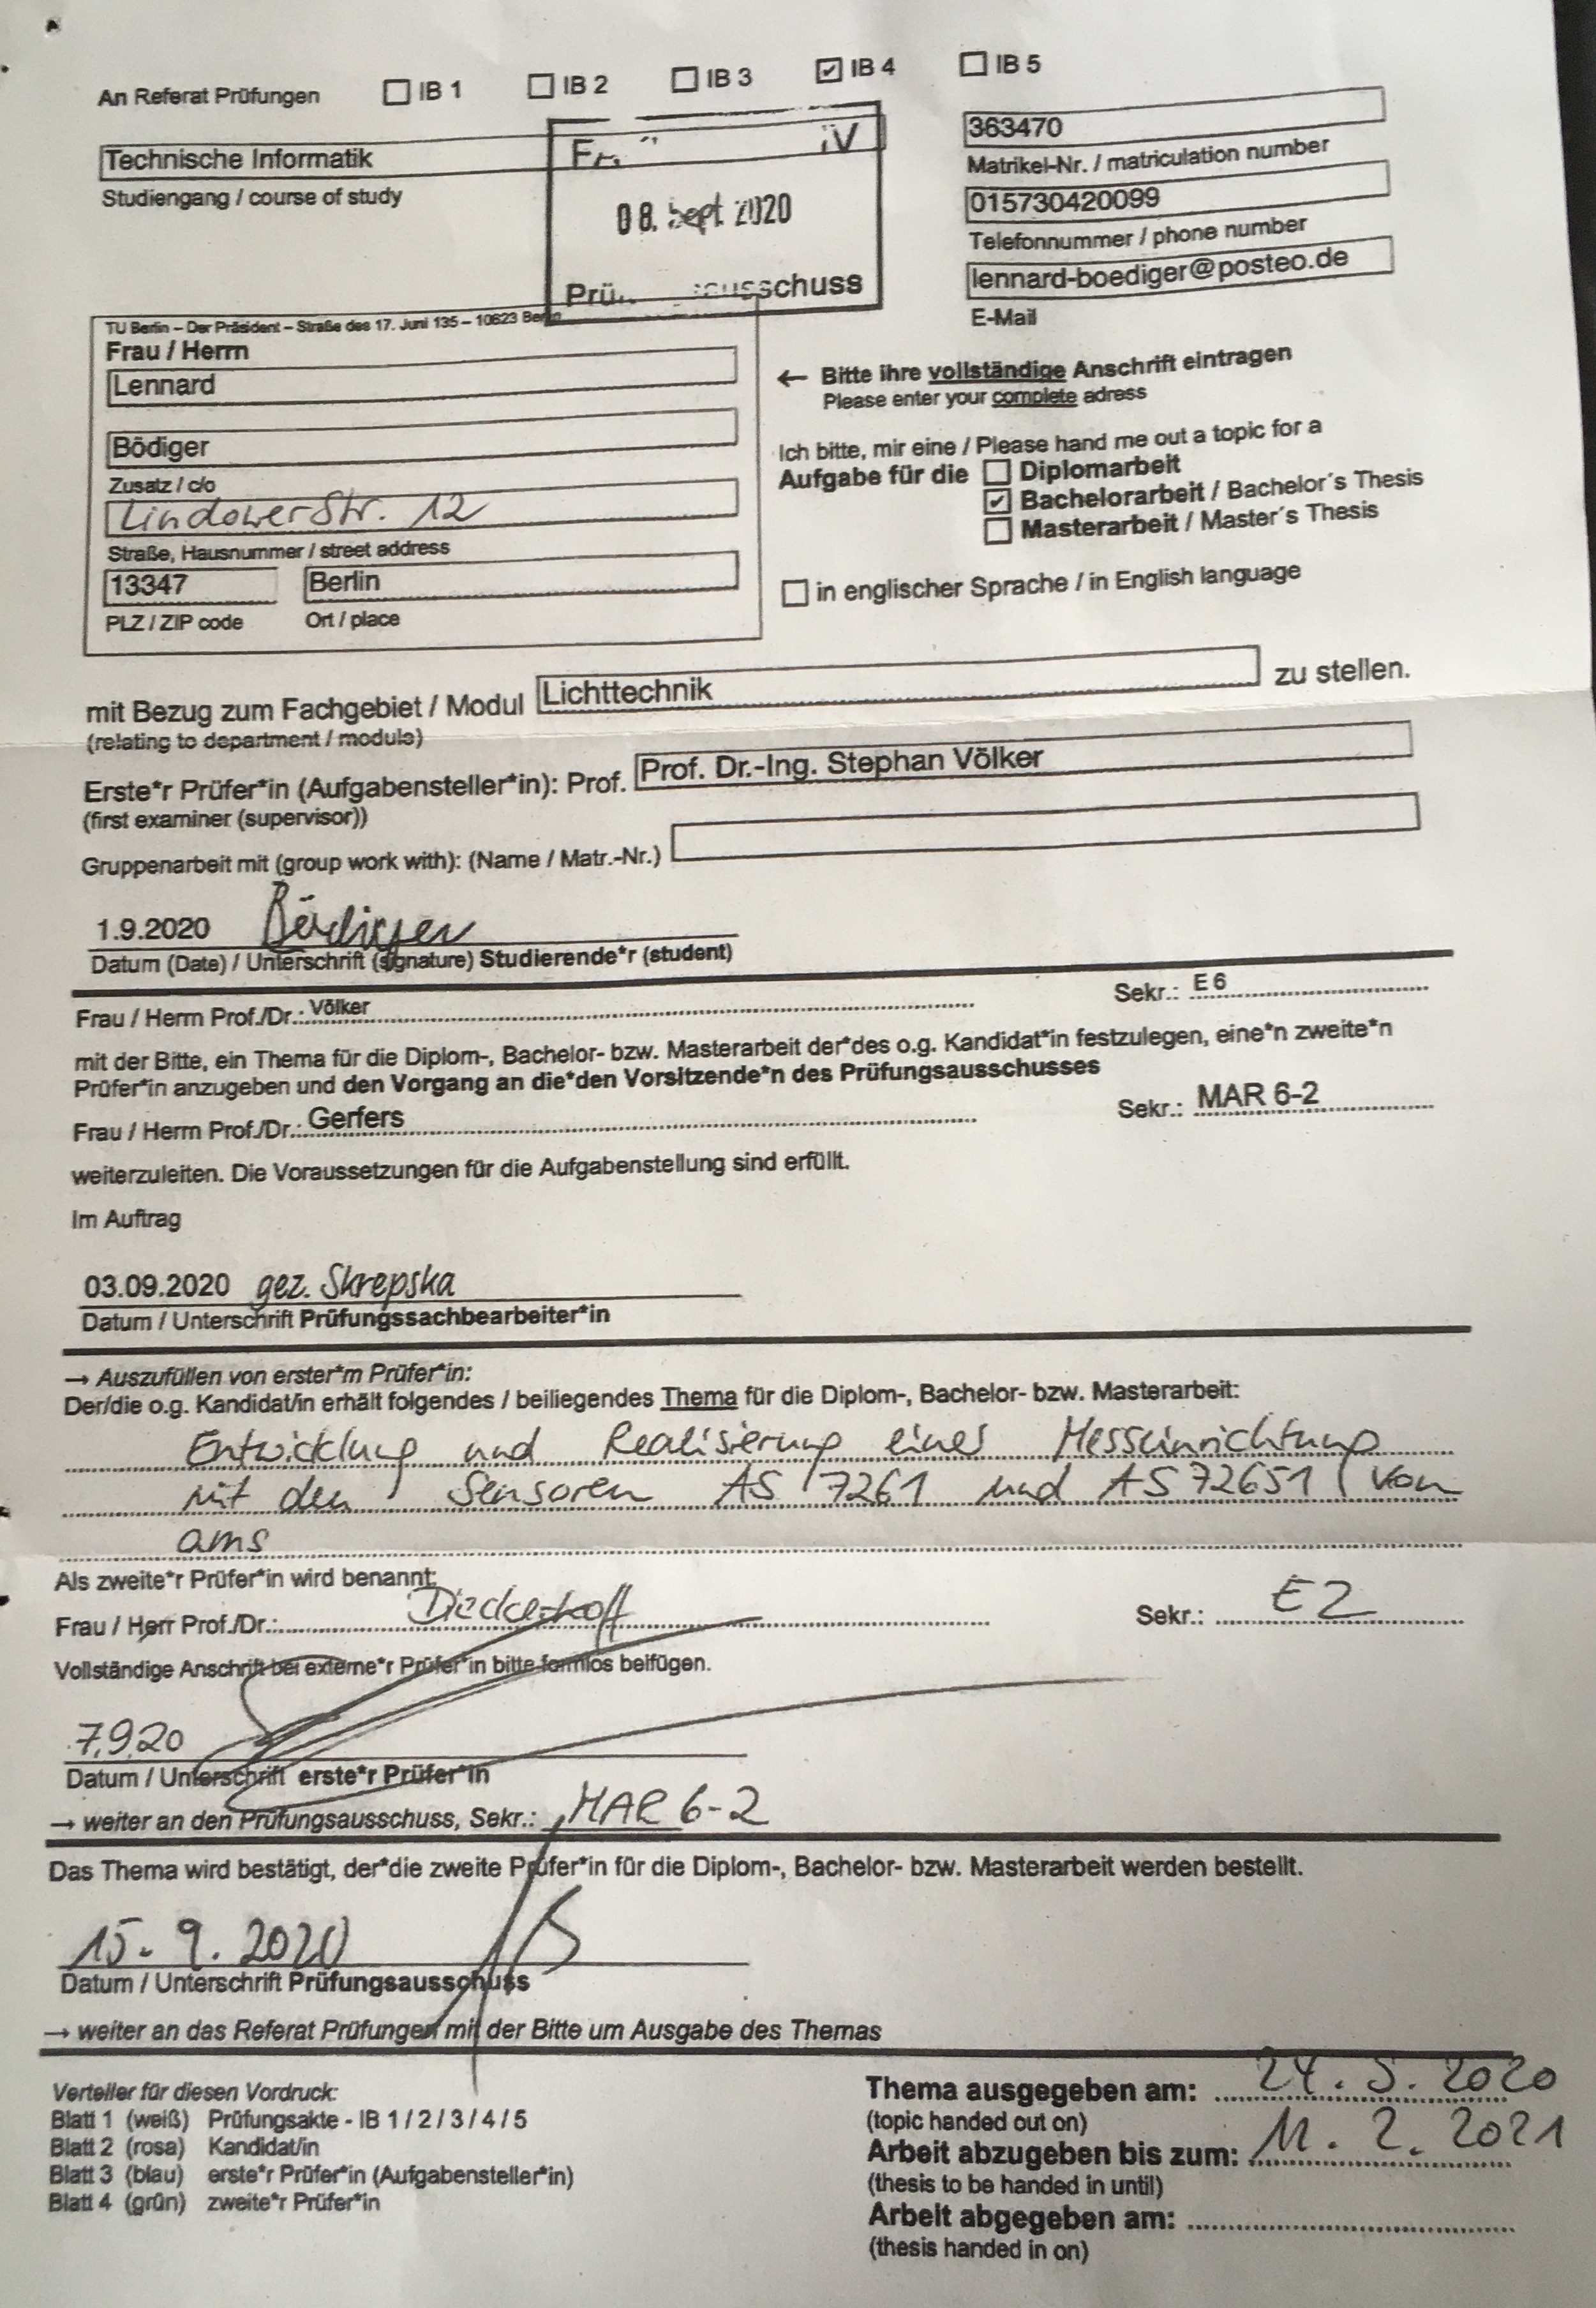 An Referat Prüfungen ☐ IB 1 ☐ IB 2 ☐ IB 3 ☑ IB 4 ☐ IB 5
Technische Informatik
Studiengang / course of study
08. Sept 2020
363470
Matrikel-Nr. / matriculation number
015730420099
Telefonnummer / phone number
lennard-boediger@posteo.de
E-Mail
TU Berlin – Der Präsident – Straße des 17. Juni 135 – 10623 Berlin
Frau / Herrn
Lennard
Bödiger
Zusatz / c/o
Lindower Str. 12
Straße, Hausnummer / street address
13347 Berlin
PLZ / ZIP code Ort / place
← Bitte ihre vollständige Anschrift eintragen
Please enter your complete adress
Ich bitte, mir eine / Please hand me out a topic for a
Aufgabe für die ☐ Diplomarbeit
☑ Bachelorarbeit / Bachelor´s Thesis
☐ Masterarbeit / Master´s Thesis
☐ in englischer Sprache / in English language
mit Bezug zum Fachgebiet / Modul Lichttechnik zu stellen.
(relating to department / module)
Erste*r Prüfer*in (Aufgabensteller*in): Prof. Prof. Dr.-Ing. Stephan Völker
(first examiner (supervisor))
Gruppenarbeit mit (group work with): (Name / Matr.-Nr.)
1.9.2020 Bödiger
Datum (Date) / Unterschrift (signature) Studierende*r (student)
Frau / Herrn Prof./Dr.: Völker Sekr.: E 6
mit der Bitte, ein Thema für die Diplom-, Bachelor- bzw. Masterarbeit der*des o.g. Kandidat*in festzulegen, eine*n zweite*n
Prüfer*in anzugeben und den Vorgang an die*den Vorsitzende*n des Prüfungsausschusses
Frau / Herrn Prof./Dr.: Gerfers Sekr.: MAR 6-2
weiterzuleiten. Die Voraussetzungen für die Aufgabenstellung sind erfüllt.
Im Auftrag
03.09.2020 gez. Skrepska
Datum / Unterschrift Prüfungssachbearbeiter*in
→ Auszufüllen von erster*m Prüfer*in:
Der/die o.g. Kandidat/in erhält folgendes / beiliegendes Thema für die Diplom-, Bachelor- bzw. Masterarbeit:
Entwicklung und Realisierung einer Messeinrichtung
mit den Sensoren AS 7261 und AS 72651 von
ams
Als zweite*r Prüfer*in wird benannt:
Frau / Herr Prof./Dr.: Dieckerhoff Sekr.: E2
Vollständige Anschrift bei externe*r Prüfer*in bitte formlos beifügen.
7.9.20
Datum / Unterschrift erste*r Prüfer*in
→ weiter an den Prüfungsausschuss, Sekr.: MAR 6-2
Das Thema wird bestätigt, der*die zweite Prüfer*in für die Diplom-, Bachelor- bzw. Masterarbeit werden bestellt.
15. 9. 2020
Datum / Unterschrift Prüfungsausschuss
→ weiter an das Referat Prüfungen mit der Bitte um Ausgabe des Themas
Verteiler für diesen Vordruck:
Blatt 1 (weiß) Prüfungsakte - IB 1 / 2 / 3 / 4 / 5
Blatt 2 (rosa) Kandidat/in
Blatt 3 (blau) erste*r Prüfer*in (Aufgabensteller*in)
Blatt 4 (grün) zweite*r Prüfer*in
Thema ausgegeben am: 2020
(topic handed out on)
Arbeit abzugeben bis zum: 11. 2. 2021
(thesis to be handed in until)
Arbeit abgegeben am:
(thesis handed in on)